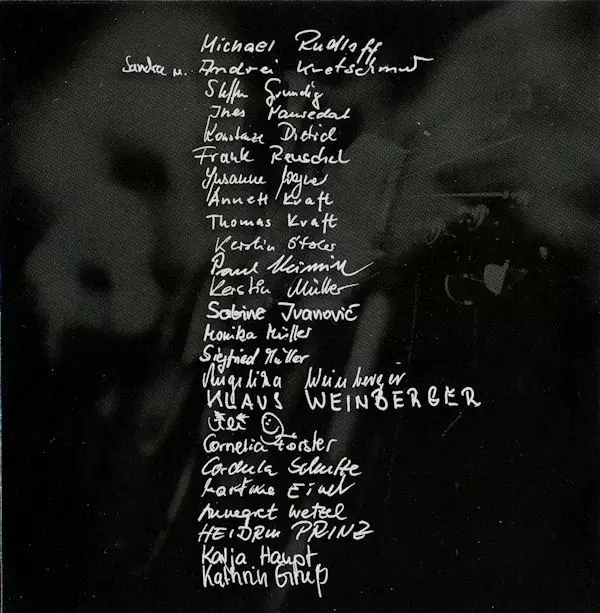 Michael Rudloff
Sandra u. Andrei Kretschmer
Steffen Grundig
Ines
Konstanze Dietrich
Frank Reuschel
Susanne
Annett Kraft
Thomas Kraft
Kerstin
Paul
Kerstin Müller
Sabine Ivanović
Monika Müller
Siegfried Müller
Angelika Weinberger
KLAUS WEINBERGER
Cornelia Förster
Cordula Schulze
Martina
Annegret Wetzel
HEIDRUN PRINZ
Katja Haupt
Kathrin